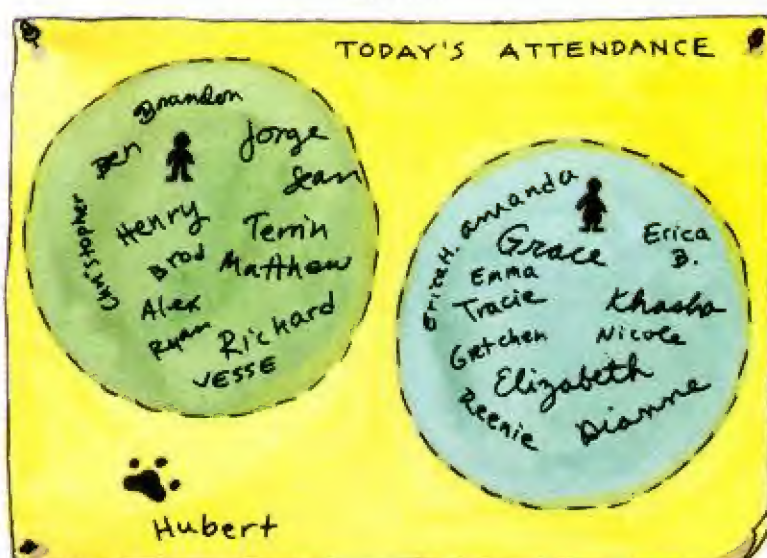 TODAY'S ATTENDANCE
Brandon
Ben
Jorge
Sean
Christopher
Henry
Terrin
Brad
Matthew
Alex
Ryan
Richard
JESSE
Amanda
Erica H.
Grace
Erica
B.
Emma
Tracie
Khasha
Gretchen
Nicole
Elizabeth
Reenie
Dianne
Hubert